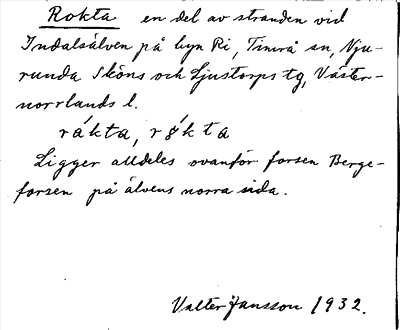 Rokta en del av stranden vid
Indalsälven på byn Ri, Timrå sn, Nju-
runda Sköns och Ljustorps tg, Väster-
norrlands l.
rákta, rǿkta
Ligger alldeles ovanför forsen Berge-
forsen på älvens norra sida.
Valter Jansson 1932.